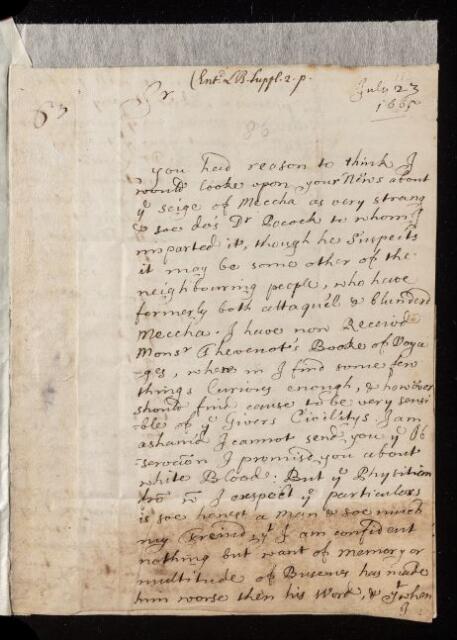 (Entd LB. Suppl. 2. p.
63
July 23
1665
Sr.
86
you had reason to think I
would looke upon your News about
ye seige of Meccha as very strang
& soe do's Dr Pocock to whom I
imparted it, though he Suspects
it may be some other of the
neighbouring people, who have
formerly both attaqu'd & plunderd
Meccha. I have now Received
Monsr Thevenot's Booke of Voya
-ges, where in I find some few
things Curious enough, & however
should find cause to be very sensi
ble of ye Givers Civilitys. I am
asham'd I cannot send you ye Ob
servation I promis'd you about
white Blood: But ye Physitian
from wm I expect ye particulars
is soe honest a man & soe much
my freind yt I am confident
nothing but want of memory or
multitude of Busenes has made
him worse then his word, & yt when
I